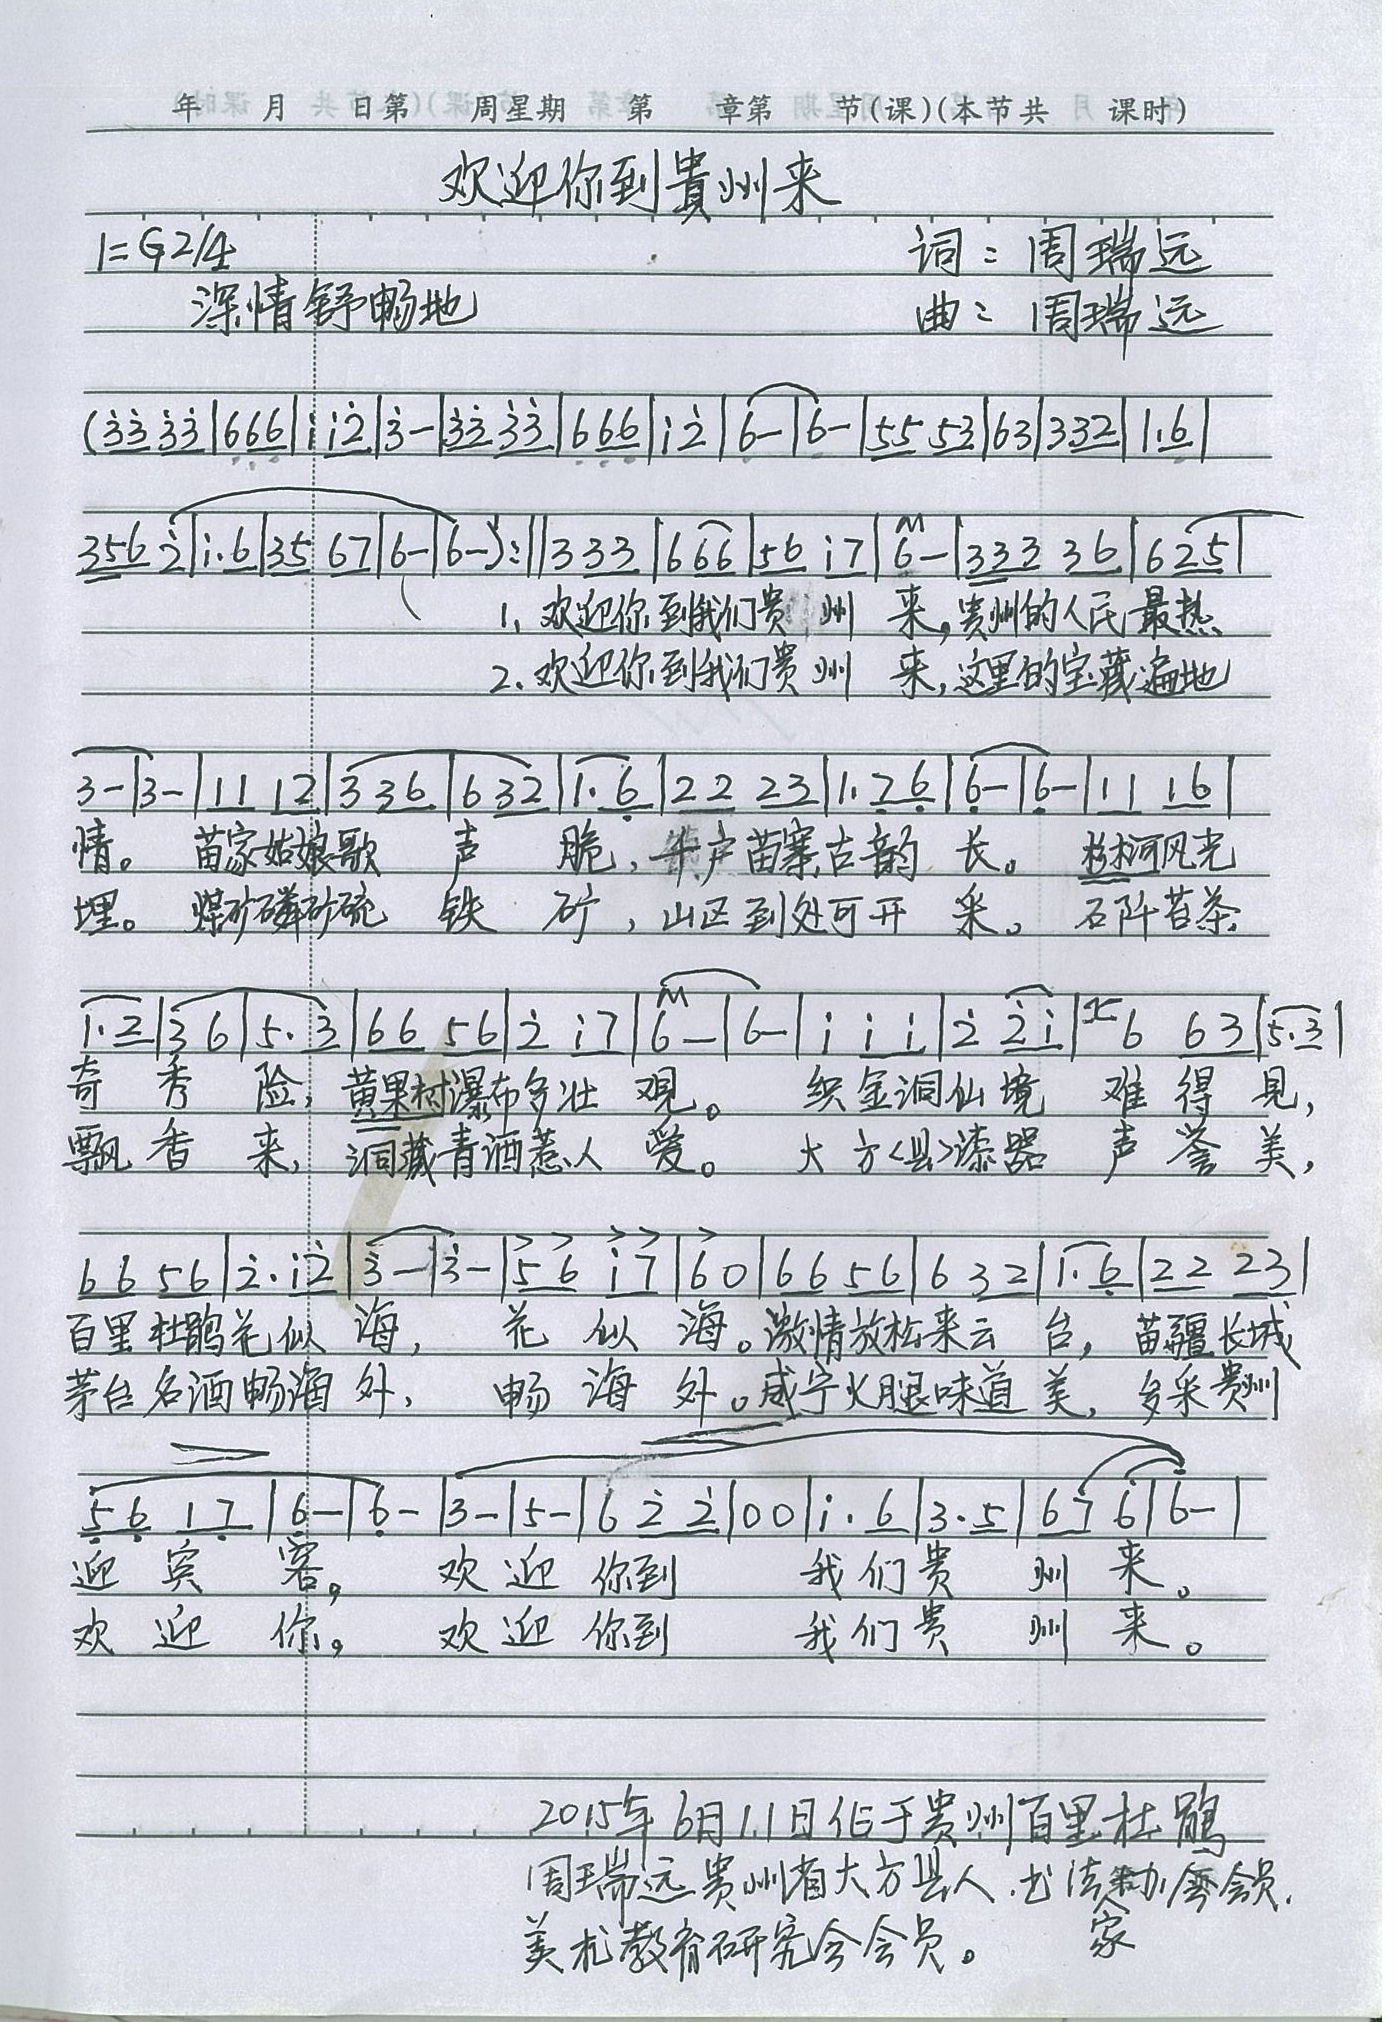 年 月 日第 周星期 第 章第 节(课)(本节共 课时)
欢迎你到貴州来
1=G2/4 词：周瑞远
深情舒畅地 曲：周瑞远
(3̇3̇ 3̇3̇|666|i i2̇|3̇-|3̇3̇ 3̇3̇|666|i 2̇|6-|6-|55 53|63|332|1.6|
356 2̇|i.6|35 67|6-|6-):||333|666|56 i7|6-|333 36|625|
1、欢迎你到我们贵州 来，贵州的人民最热
2、欢迎你到我们贵州 来，这里的宝藏遍地
3-|3-|11 12|336|632|1.6|22 23|1.26|6-|6-|11 16|
情。 苗家姑娘歌 声 脆， 户苗寨古韵 长。 河风光
埋。 煤矿磷矿硫 铁 矿，山区到处可开 采。 石阡苔茶
1.2|36|5.3|66 56|2̇ i7|6-|6-|i i i|2̇ 2̇i|6 63|5.3|
奇 秀 险，黄果树瀑布多壮 观。 织金洞仙境 难 得 見，
飘 香 来，洞藏青酒惹人 爱。 大方<县>漆器 声 誉 美，
66 56|2̇.i2̇|3̇-|3̇-|56 i7|60|66 56|632|1.6|22 23|
百里杜鹃花似 海， 花 似 海。激情放松来云 台，苗疆长城
茅台名酒畅酒 外， 畅 海 外。威宁火腿味道 美，多采贵州
56 17|6-|6-|3-|5-|6 2̇ 2̇|00|i.6|3.5|67 6|6-|
迎 宾 客。 欢 迎 你到 我们贵 州 来。
欢 迎 你。 欢 迎 你到 我们贵 州 来。
2015年6月11日作于贵州百里杜鹃
周瑞远贵州省大方县人.书法家协会会员.
美术教育研究会会员。